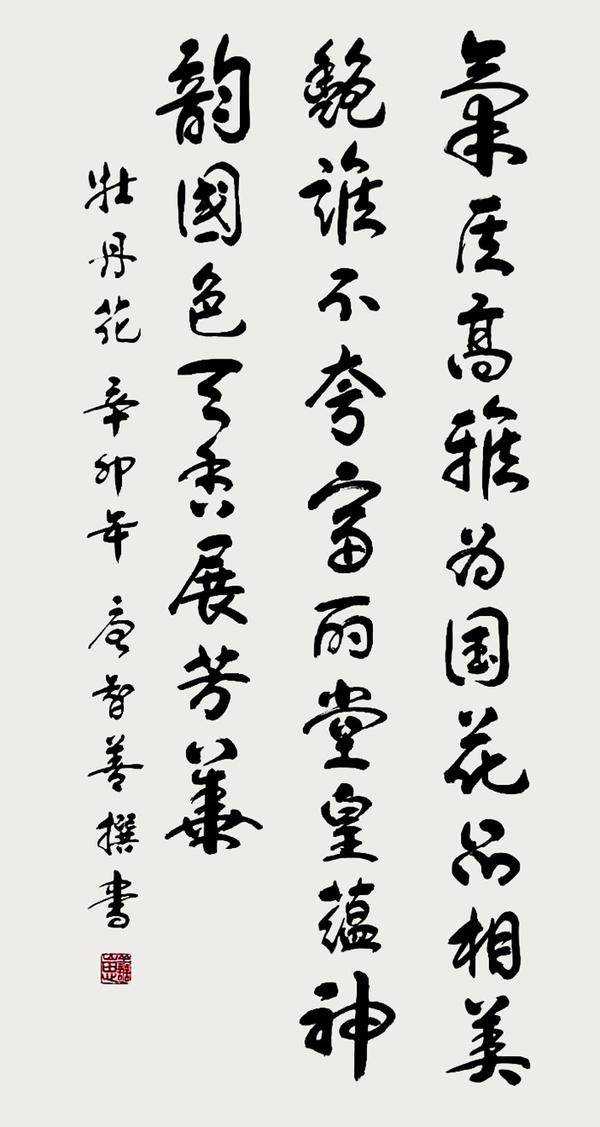 氣质高雅为国花品相美
艷誰不夸富丽堂皇蕴神
韵國色天香展芳華
牡丹花 辛卯年 唐智善撰书